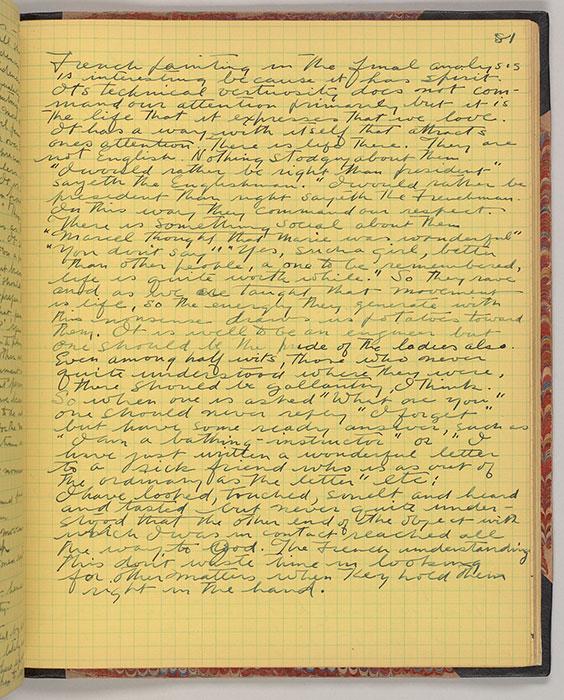 81
French painting in the final analysis
is interesting because it has spirit.
Its technical vertuosity does not com-
mand our attention primarily but it is
the life that it expresses that we love.
It has a way with itself that attracts
ones attention. There is life there. They are
not English. Nothing stodgy about them
"I would rather be right than president"
sayeth the Englishman. "I would rather be
president than right sayeth the Frenchman.
In this way they command our respect.
There is something social about them
"Marcel thought that Marie was wonderful"
"You don't say" "Yes, such a girl, better
than other people, one to be remembered,
life is quite worth while." So they rave
and as we are taught that movement
is life, so the energy they generate with
this nonsense draws us potatoes toward
them. It is well to be an engineer but
one should be the pride of the ladies also.
Even among half wits, those who never
quite understood where they were,
there should be gallantry, I think.
So when one is asked "What are you"
one should never reply "I forget"
but have some ready answer, such as
"I am a bathing-instructor" or "I
have just written a wonderful letter
to a sick friend who is as out of
the ordinary as the letter" etc:
I have looked, touched, smelt and heard
and tasted but never quite under-
stood that the other end of the object with
which I was in contact reached all
the way to God. The French understanding
this don't waste time in looking
for other matters when they hold them
right in the hand.